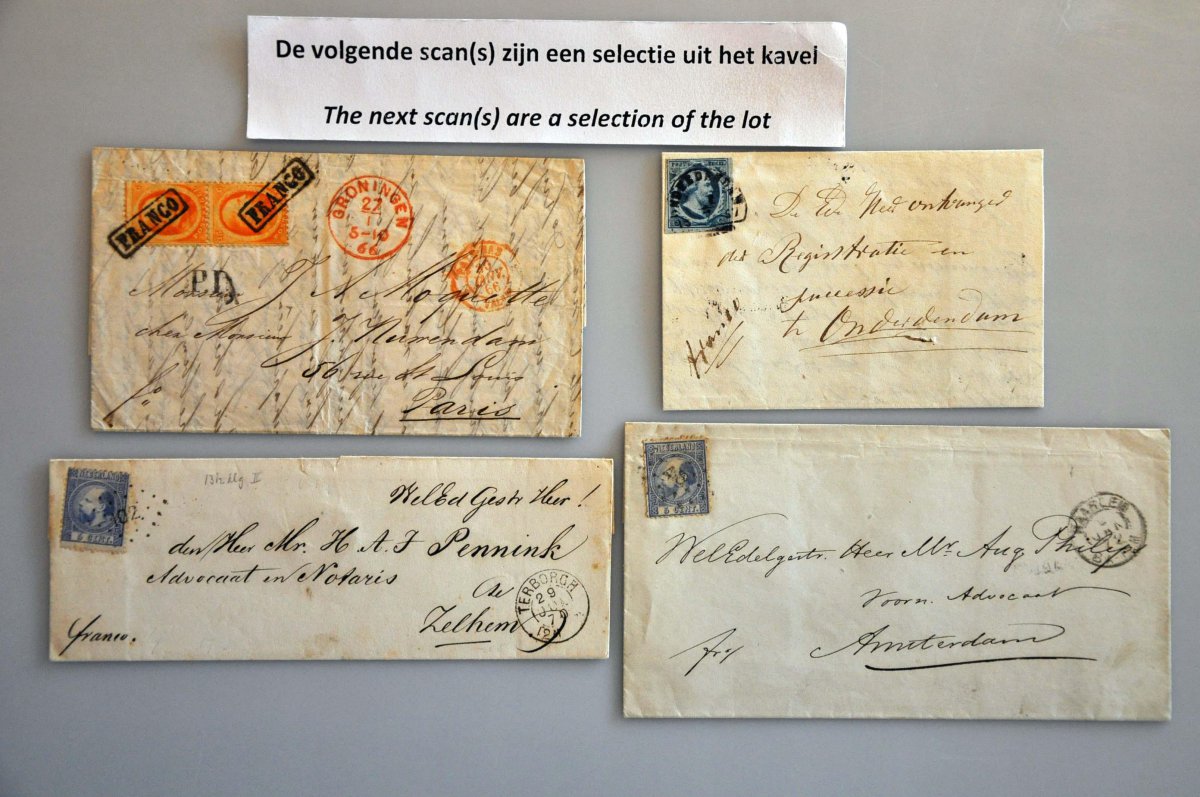 De volgende scan(s) zijn een selectie uit het kavel
The next scan(s) are a selection of the lot
FRANCO
FRANCO
GRONINGEN
22
5-10
66
P.D.
Monsieur J. N.
chez Monsieur J. Nieuwendam
56 rue St Louis
Paris
POSTZEGEL
De
der Registratie en
successie
te Onderdendam
franco
NEDERLAND
5 CENT.
102
13½ II
WelEd Gestr Heer!
den Heer Mr. H. A. J. Pennink
Advocaat en Notaris
te
Zelhem
franco.
TERBORGH
29
NEDERLAND
5 CENT.
HAARLEM
WelEdelgestr. Heer Mr. Aug. Philips
Voorn. Advocaat
Amsterdam